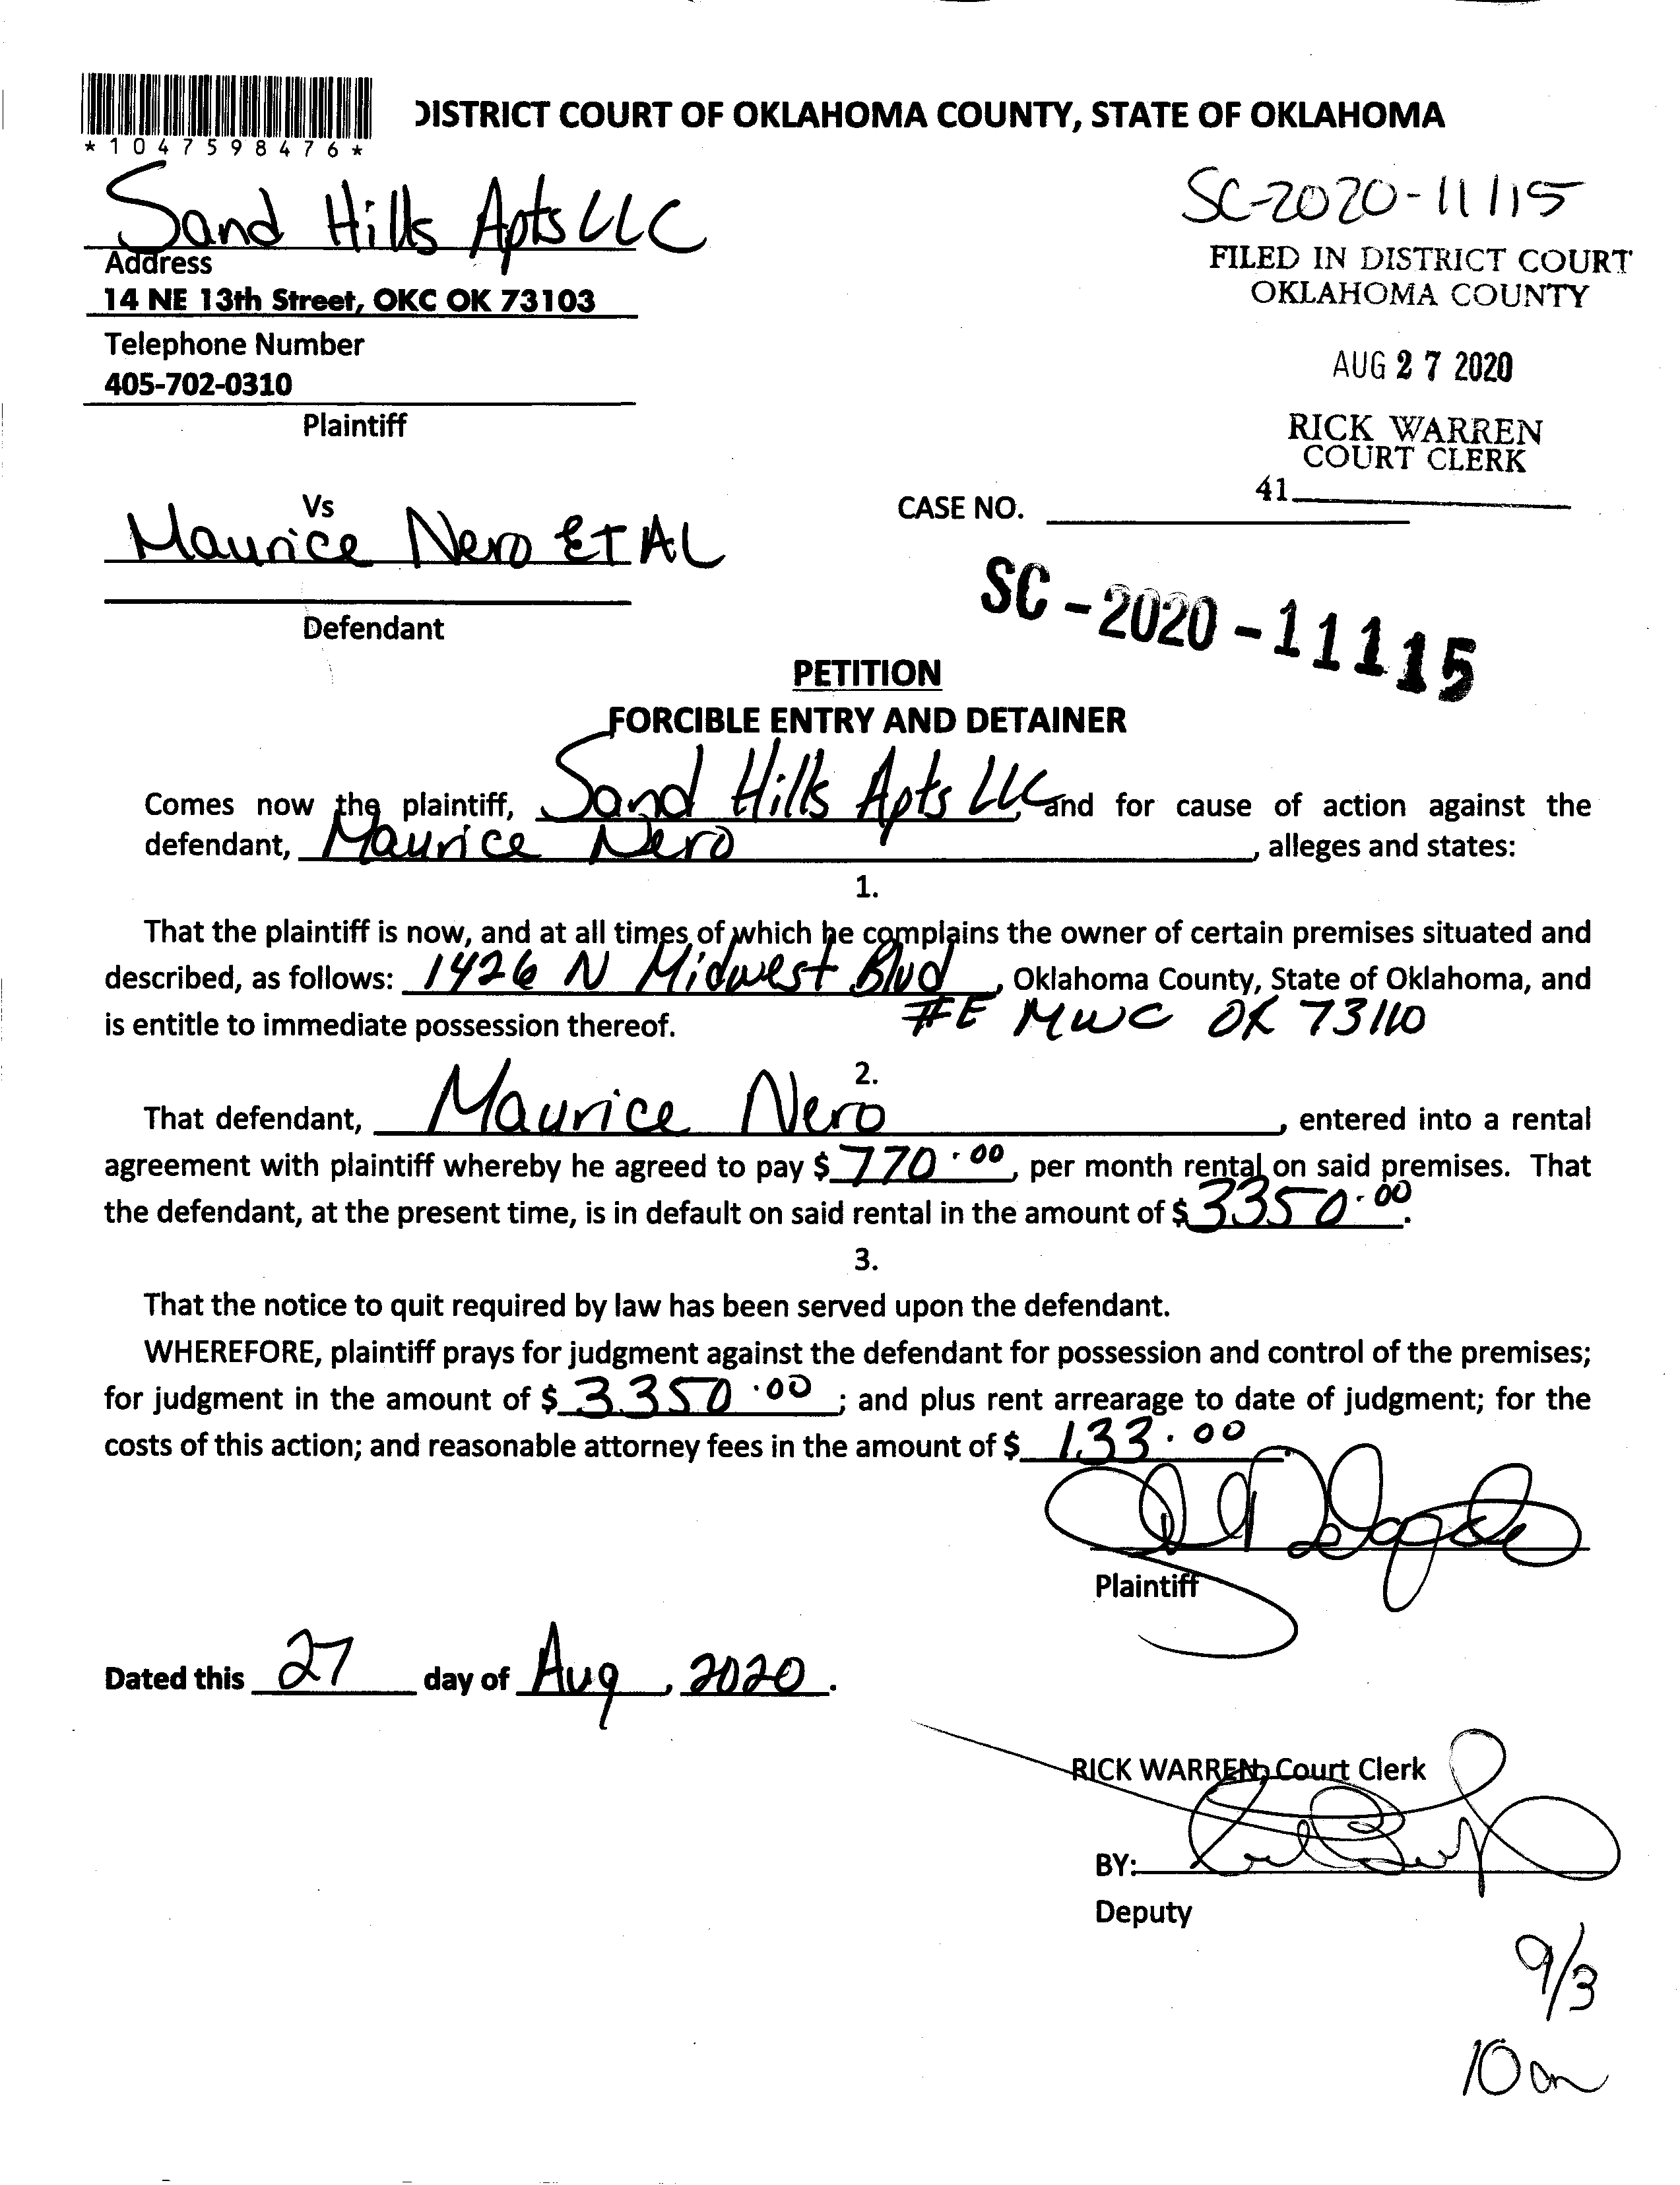 DISTRICT COURT OF OKLAHOMA COUNTY, STATE OF OKLAHOMA
*1047598476*
Sand Hills Apts LLC
SC-2020-11115
Address
FILED IN DISTRICT COURT
OKLAHOMA COUNTY
14 NE 13th Street, OKC OK 73103
Telephone Number
AUG 27 2020
405-702-0310
Plaintiff
RICK WARREN
COURT CLERK
41
Vs
CASE NO.
Maurice Nero ET AL
SC-2020-11115
Defendant
PETITION
FORCIBLE ENTRY AND DETAINER
Comes now the plaintiff, Sand Hills Apts LLC, and for cause of action against the
defendant, Maurice Nero, alleges and states:
1.
That the plaintiff is now, and at all times of which he complains the owner of certain premises situated and
described, as follows: 1426 N Midwest Blvd, Oklahoma County, State of Oklahoma, and
#E MWC OK 73110
is entitle to immediate possession thereof.
2.
That defendant, Maurice Nero, entered into a rental
agreement with plaintiff whereby he agreed to pay $ 770.00, per month rental on said premises. That
the defendant, at the present time, is in default on said rental in the amount of $ 3350.00.
3.
That the notice to quit required by law has been served upon the defendant.
WHEREFORE, plaintiff prays for judgment against the defendant for possession and control of the premises;
for judgment in the amount of $ 3350.00; and plus rent arrearage to date of judgment; for the
costs of this action; and reasonable attorney fees in the amount of $ 133.00.
Plaintiff
Dated this 27 day of Aug, 2020.
RICK WARREN, Court Clerk
BY:
Deputy
9/3
10 am